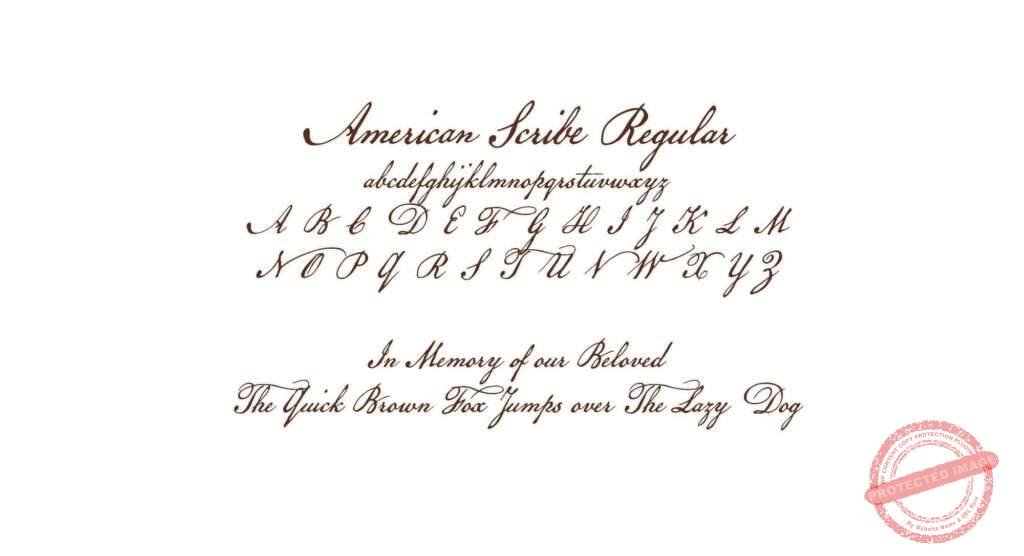 American Scribe Regular
abcdefghijklmnopqrstuvwxyz
A B C D E F G H I J K L M
N O P Q R S T U V W X Y Z
In Memory of our Beloved
The Quick Brown Fox Jumps over The Lazy Dog
CONTENT COPY PROTECTION PLUGIN
PROTECTED IMAGE
My Website Name & URL Here